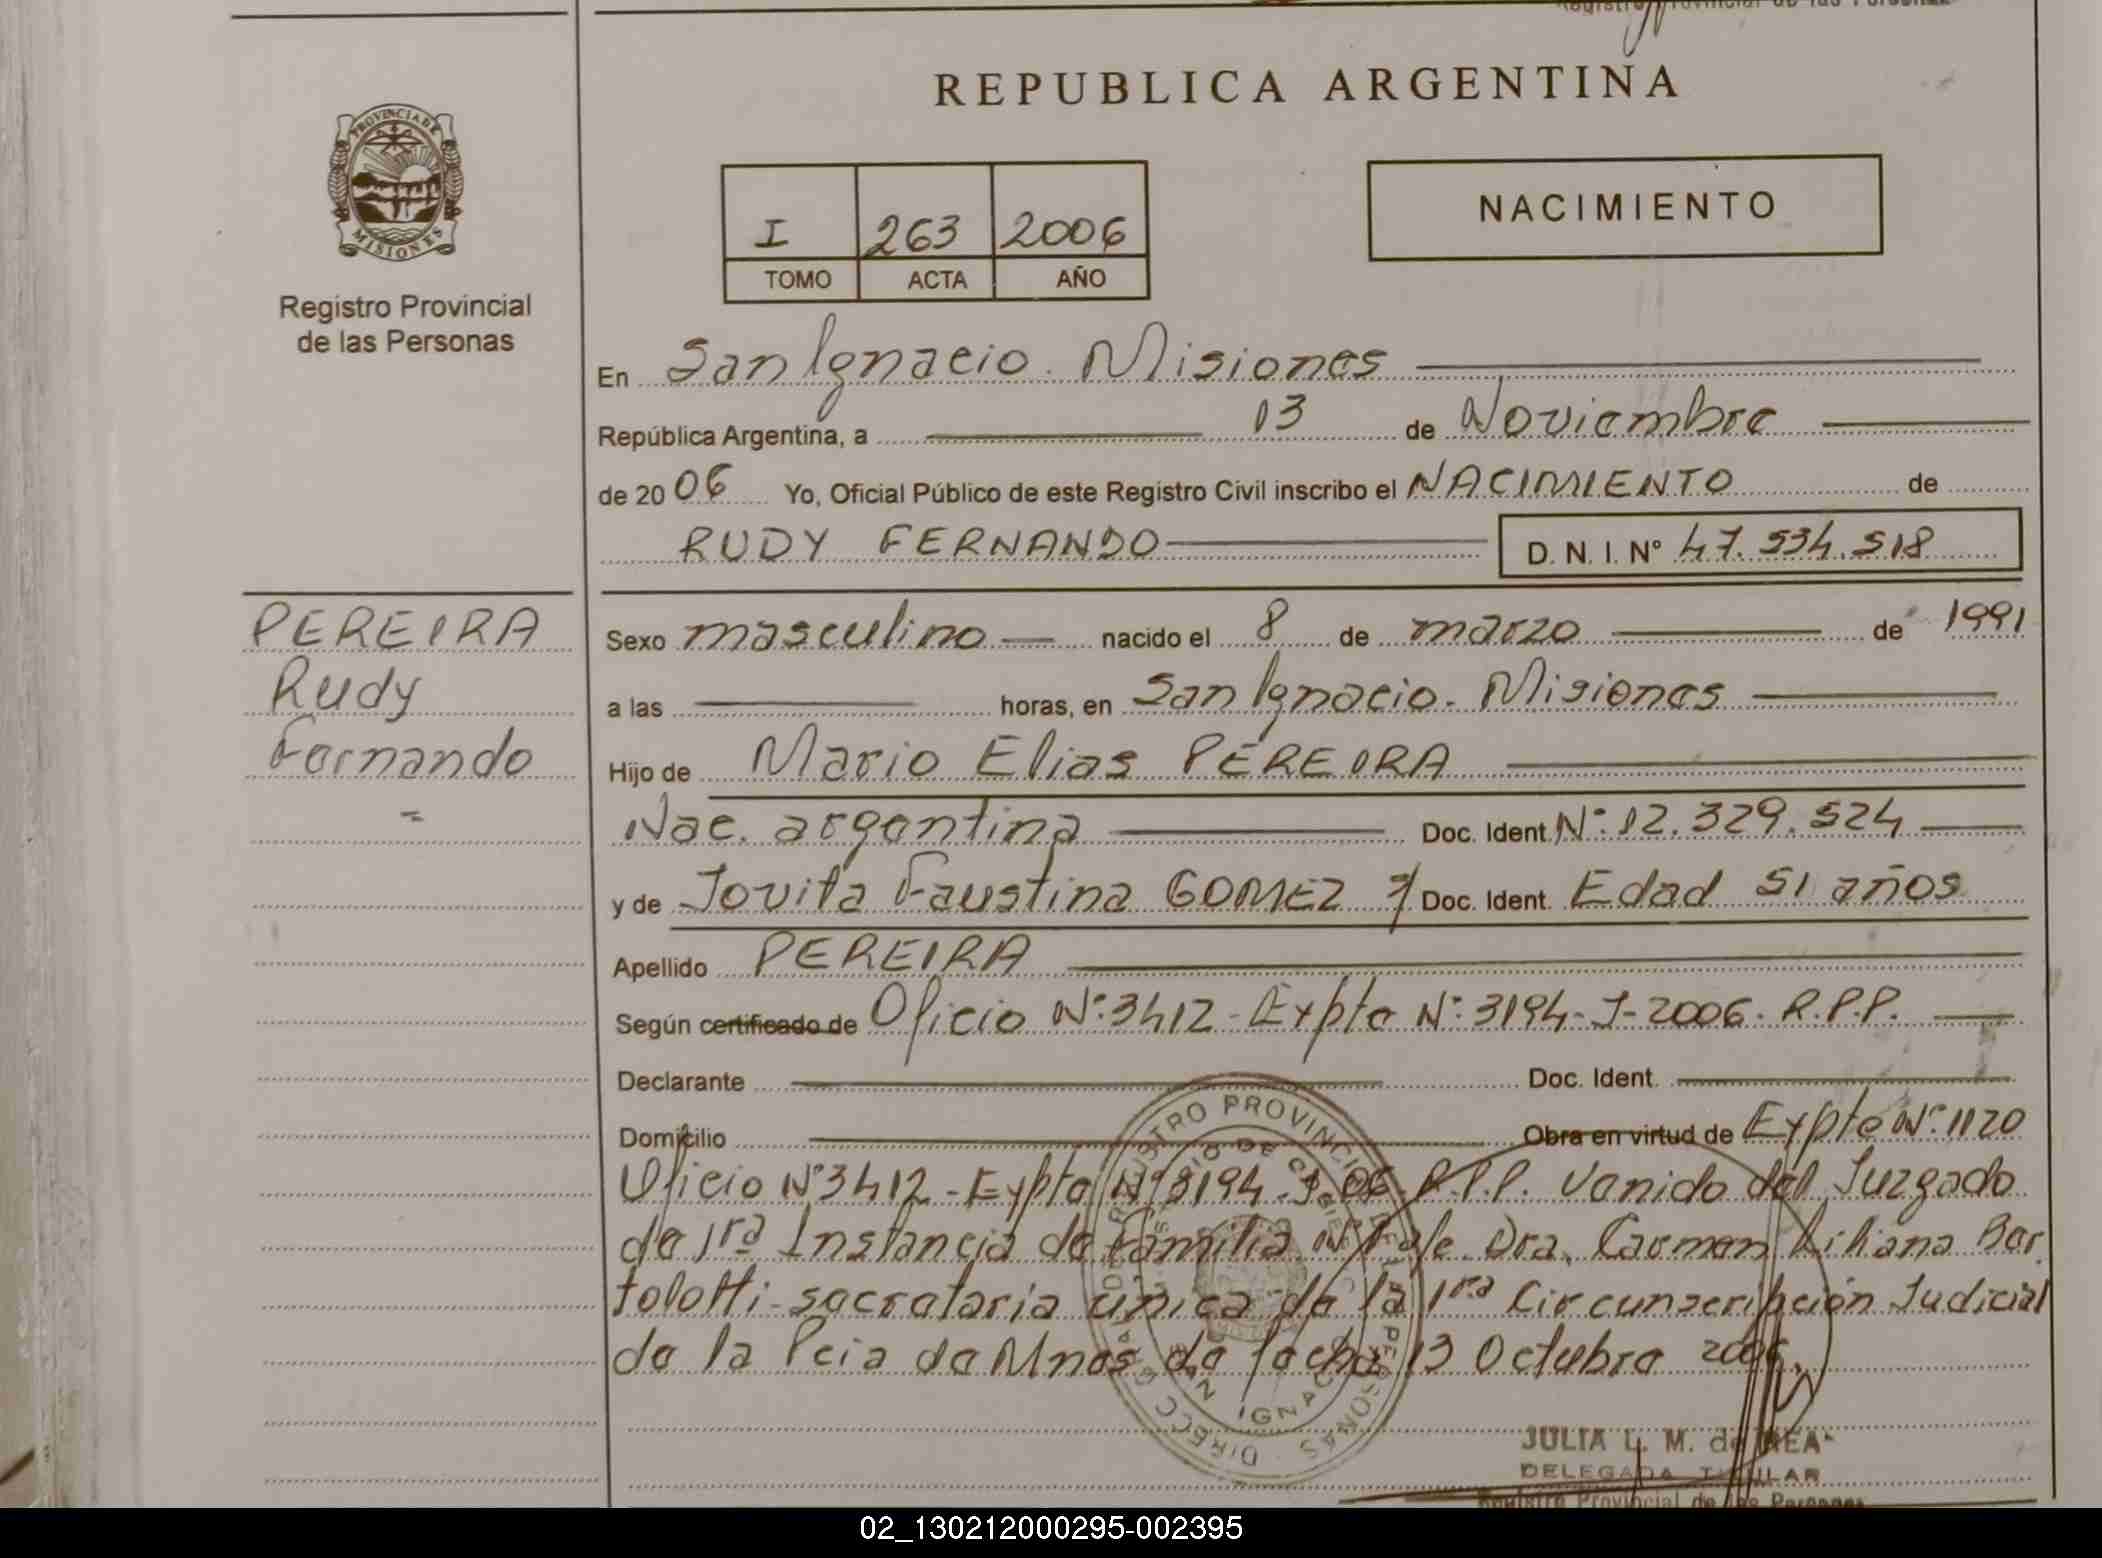 Registro Provincial de las Personas
REPUBLICA ARGENTINA
PROVINCIA DE
MISIONES
Registro Provincial
de las Personas
I 263 2006
TOMO ACTA AÑO
NACIMIENTO
En San Ignacio. Misiones
República Argentina, a 13 de Noviembre
de 2006 Yo, Oficial Público de este Registro Civil inscribo el NACIMIENTO de
RUDY FERNANDO D. N. I. Nº 47.534.518
PEREIRA
Rudy
Fernando
Sexo masculino nacido el 8 de marzo de 1991
a las horas, en San Ignacio. Misiones
Hijo de Mario Elias PEREIRA
Nac. argentina Doc. Ident. Nº: 12.329.524
y de Jovita Faustina GOMEZ Doc. Ident. Edad 51 años
Apellido PEREIRA
Según certificado de Oficio Nº: 3412 - Expte Nº: 3194-J-2006. R.P.P.
Declarante Doc. Ident.
Domicilio Obra en virtud de Expte Nº: 1120
Oficio Nº 3412 - Expte Nº 3194-J-06 R.P.P. Venido del Juzgado
de 1ra Instancia de Familia Dra. Carmen Liliana Bar
tolotti - secretaria única de la 1ra Circunscripción Judicial
de la Pcia de Mnes de fecha 13 Octubre 2006.
DIRECC GRAL DEL REGISTRO PROVINCIAL DE LAS PERSONAS
SAN IGNACIO
JULIA L. M. de
DELEGADA TITULAR
Registro Provincial de las Personas
02_130212000295-002395